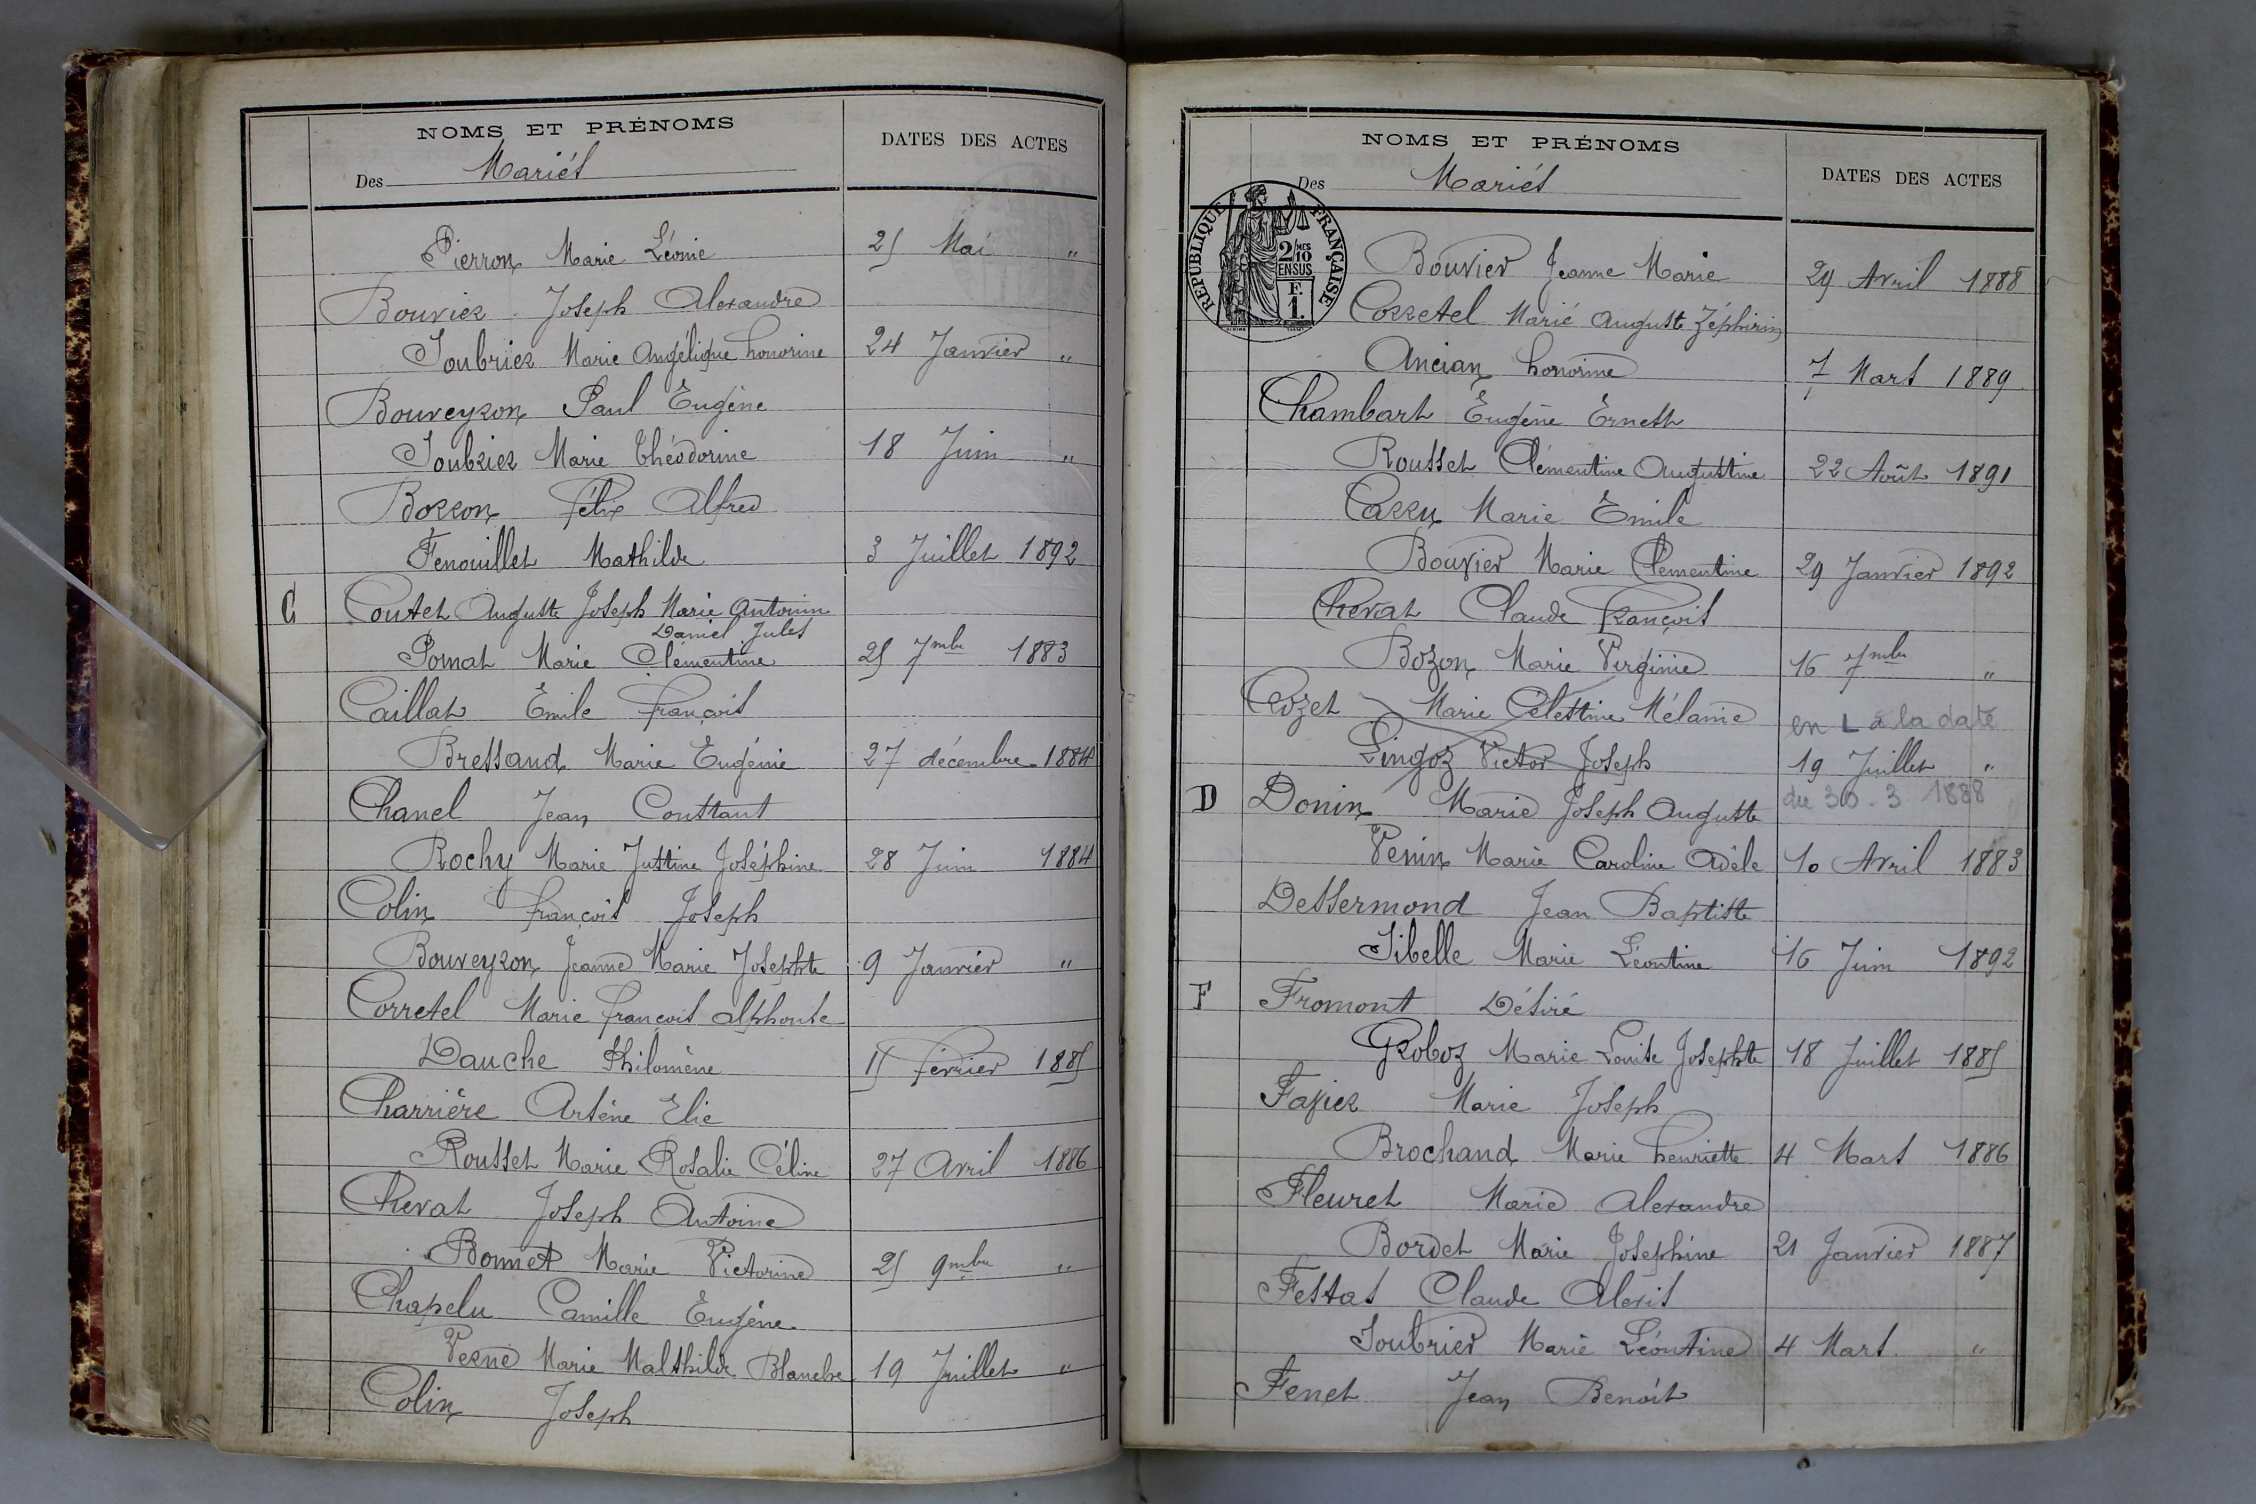 NOMS ET PRÉNOMS
DATES DES ACTES
Des Mariés
Pierron Marie Léonie 25 Mai "
Bouvier Joseph Alexandre
Soubrier Marie Angélique honorine 24 Janvier "
Bouveyron Paul Eugène
Soubrier Marie Théodorine 18 Juin "
Borron Félix Alfred
Fenouillet Mathilde 3 Juillet 1892
C Coutet Auguste Joseph Marie Antonin
Daniel Jules
Pomat Marie Clémentine 25 7mbre 1883
Caillat Émile françois
Bressand Marie Eugénie 27 décembre 1884
Chanel Jean Constant
Rochy Marie Justine Joséphine 28 Juin 1884
Colin françois Joseph
Bouveyron Jeanne Marie Josephte 9 Janvier "
Corretel Marie françois alphonse
Dauche Philomène 15 février 1885
Charrière Arsène Elie
Rousset Marie Rosalie Céline 27 Avril 1886
Chevat Joseph Antoine
Bonnet Marie Victorine 25 9mbre "
Chapelu Camille Eugène
Verne Marie Malthilde Blanche 19 Juillet "
Colin Joseph
NOMS ET PRÉNOMS
DATES DES ACTES
Des Mariés
RÉPUBLIQUE FRANÇAISE
2/10 MES
EN SUS
F.
1.
Bouvier Jeanne Marie 29 Avril 1888
Corretel Marie Auguste Zéphirin
Ancian honorine 7 Mars 1889
Chambart Eugène Ernest
Rousset Clémentine Augustine 22 Août 1891
Carru Marie Émile
Bouvier Marie Clémentine 29 Janvier 1892
Chevat Claude François
Bozon Marie Virginie 16 7mbre "
Crozet Marie Célestine Mélanie en L à la date
Lingoz Victor Joseph 19 Juillet "
du 30.3 1888
D Donin Marie Joseph Auguste
Venin Marie Caroline Adèle 10 Avril 1883
Dessermond Jean Baptiste
Sibelle Marie Léontine 16 Juin 1892
F Fromont Désiré
Groboz Marie Louise Josephte 18 Juillet 1885
Favier Marie Joseph
Brochand Marie henriette 4 Mars 1886
Fleuret Marie Alexandre
Bordet Marie Joséphine 21 Janvier 1887
Festas Claude Alexis
Soubrier Marie Léontine 4 Mars "
Fenet Jean Benoît